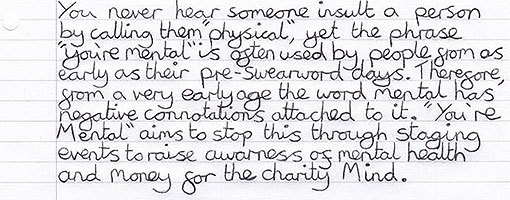 You never hear someone insult a person
by calling them "physical", yet the phrase
"you're mental" is often used by people from as
early as their pre-swearword days. Therefore,
from a very early age the word mental has
negative connotations attached to it. "You're
Mental" aims to stop this through staging
events to raise awarness of mental health
and money for the charity Mind.